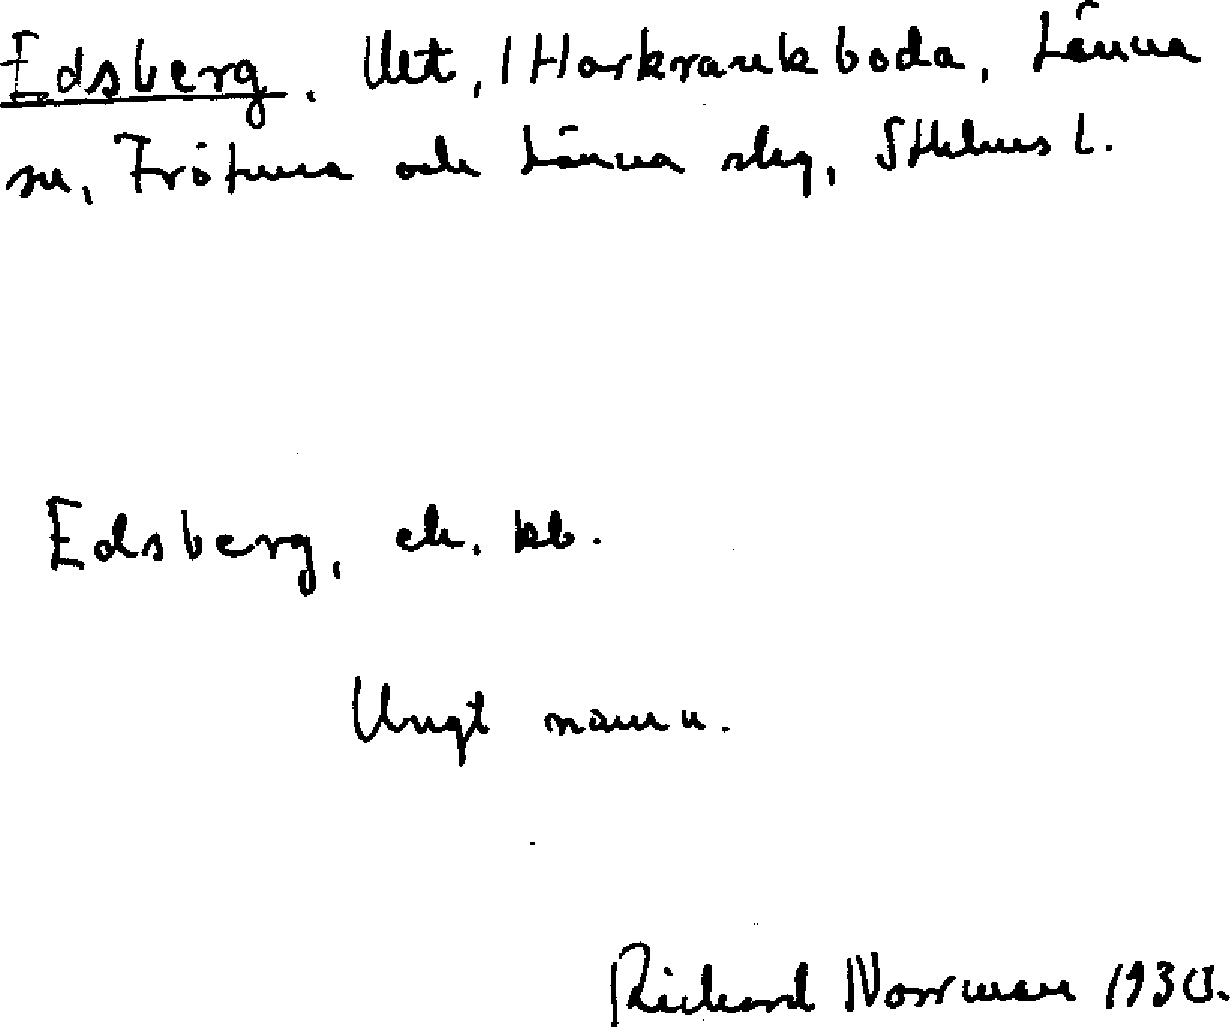 Edsberg. 1 Harkrankboda, Länna
sn, Frötuna och Länna skg, Sthlms l.
Edsberg, ek. kb.
Ungt namn.
Richard Norrman 1930.